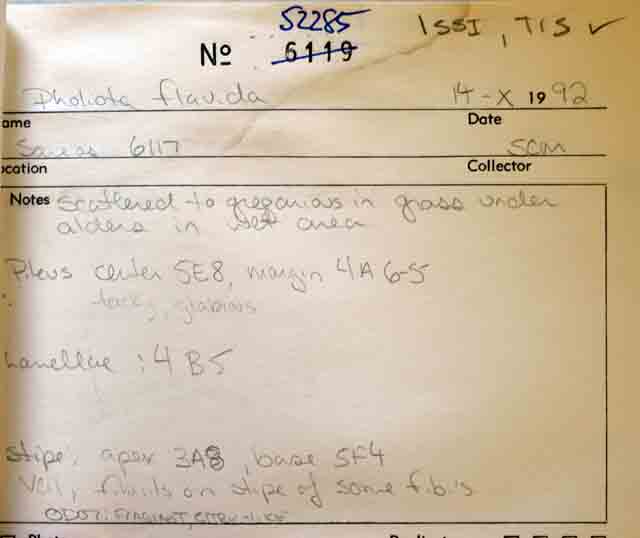 52285 ISSI, TIS ✓
Nº 6119
Pholiota flavida 14-X 1992
ame Date
Same as 6117 SCM
ocation Collector
Notes Scattered to gregarious in grass under
alders in wet area
Pileus center 5E8, margin 4A6-5
tacky, glabrous
Lamellae : 4B5
Stipe: apex 3A8, base 5F4
Veil, fibrils on stipe of some f.b.'s
ODOR: FRAGRANT,